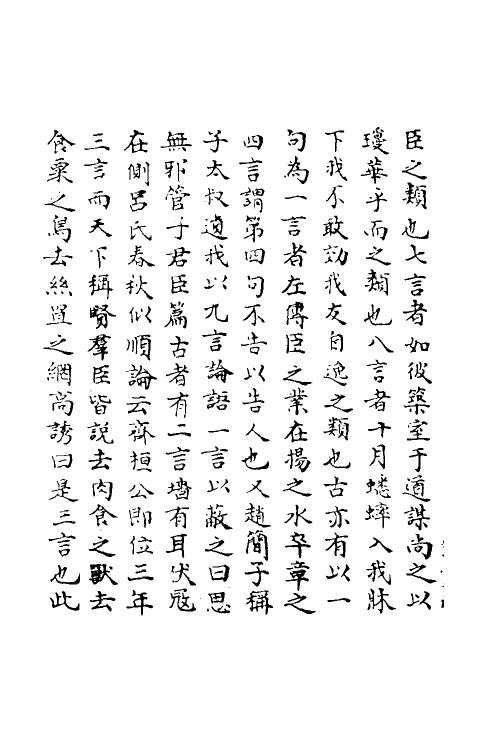 臣之類也七言者如彼築室于道謀尚之以
瓊華乎而之類也八言者十月蟋蟀入我牀
下我不敢効我友自逸之類也古亦有以一
句為一言者左傳臣之業在揚之水卒章之
四言謂第四句不告以告人也又趙簡子稱
子太叔遺我以九言論語一言以蔽之曰思
無邪管子君臣篇古者有二言墻有耳伏寇
在側呂氏春秋似順論云齊桓公即位三年
三言而天下稱賢羣臣皆說去肉食之獸去
食粟之鳥去絲罝之網高誘曰是三言也此